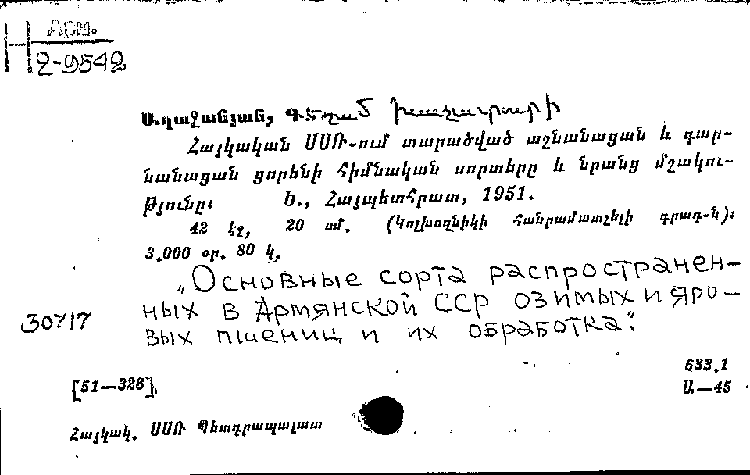 Арм.
2-9542
Աղաջանյան, Գեղամ Խաչատուրի
Հայկական ՍՍՌ-ում տարածված աշնանացան և գար-
նանացան ցորենի հիմնական սորտերը և նրանց մշակու-
թյունը։ Ե., Հայպետհրատ, 1951.
42 էջ, 20 սմ. (Կոլխոզնիկի հանրամատչելի գրադ-ն)։
3.000 օր. 80 կ.
„Основные сорта распространен-
ных в Армянской ССР озимых и яро-
вых пшениц и их обработка".
30717
633.1
[51—326]
Ա—45
Հայկակ. ՍՍՌ Պետգրապալատ